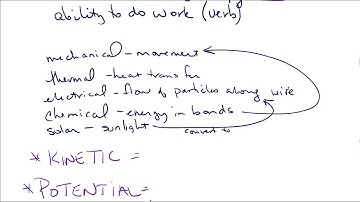 ability to do work (verb)
mechanical - movement
thermal - heat transfer
electrical - flow of particles along wire
chemical - energy in bonds
solar - sunlight convert to
* KINETIC =
* POTENTIAL=